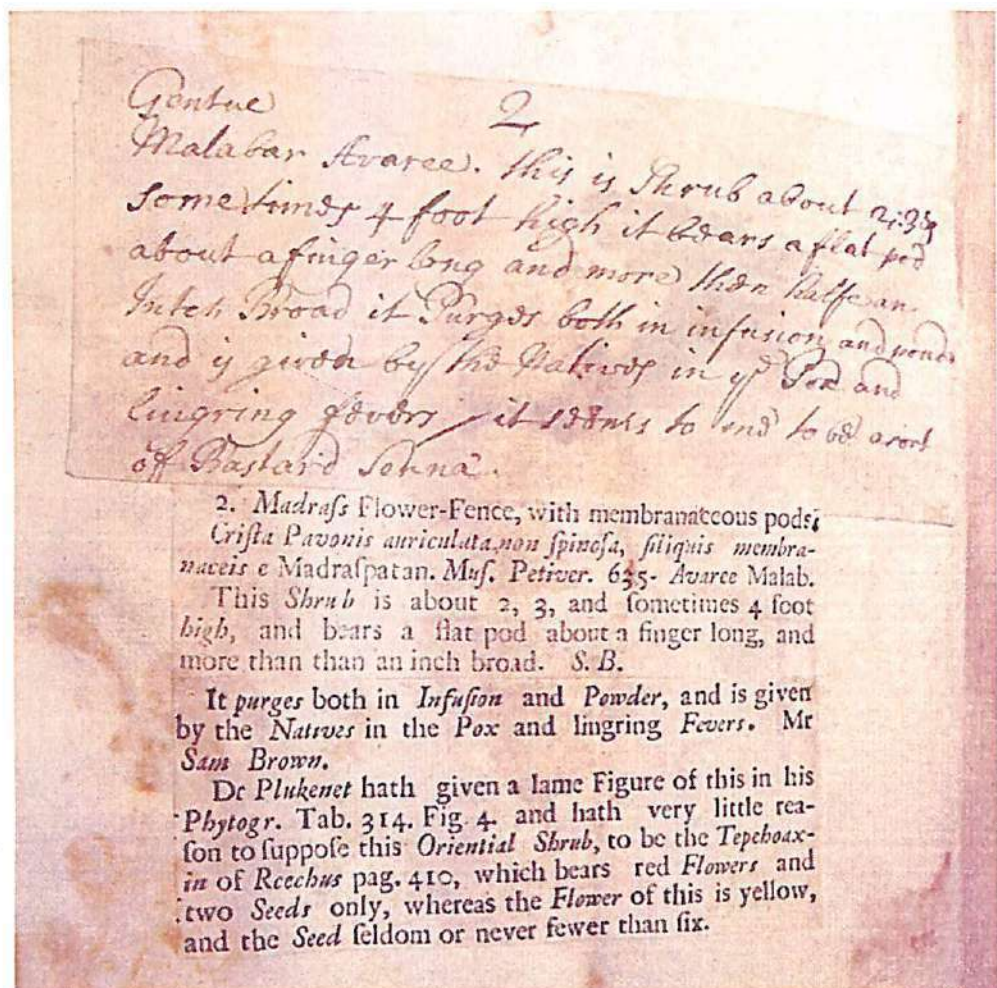 Gentue 2
Malabar Avaree. this is Shrub about 2, 3, &
some times 4 foot high it bears a flat pod
about a finger long and more then halfe an
Intch Broad it Purges both in infusion and
and is given by the Natives in ye Pox and
lingring fevers it seems to me to be a sort
off Bastard Senna.
2. Madraſs Flower-Fence, with membranaceous pods.
Criſta Pavonis auriculata, non ſpinoſa, ſiliquis membra-
naceis e Madraſpatan. Muſ. Petiver. 635. Avaree Malab.
This Shrub is about 2, 3, and ſometimes 4 foot
high, and bears a flat pod about a finger long, and
more than than an inch broad. S. B.
It purges both in Infuſion and Powder, and is given
by the Natives in the Pox and lingring Fevers. Mr
Sam Brown.
Dr Plukenet hath given a lame Figure of this in his
Phytogr. Tab. 314. Fig. 4. and hath very little rea-
ſon to ſuppoſe this Oriential Shrub, to be the Tepehoax-
in of Reechus pag. 410, which bears red Flowers and
two Seeds only, whereas the Flower of this is yellow,
and the Seed ſeldom or never fewer than ſix.